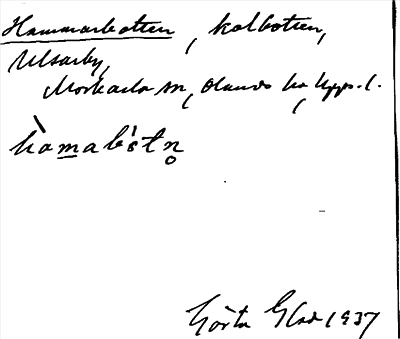 Hammarbotten, kolbotten,
Ulsarby,
Morkarla sn, Olands hd, Upps. l.
hàmabòtn̥
Görta Glad 1937